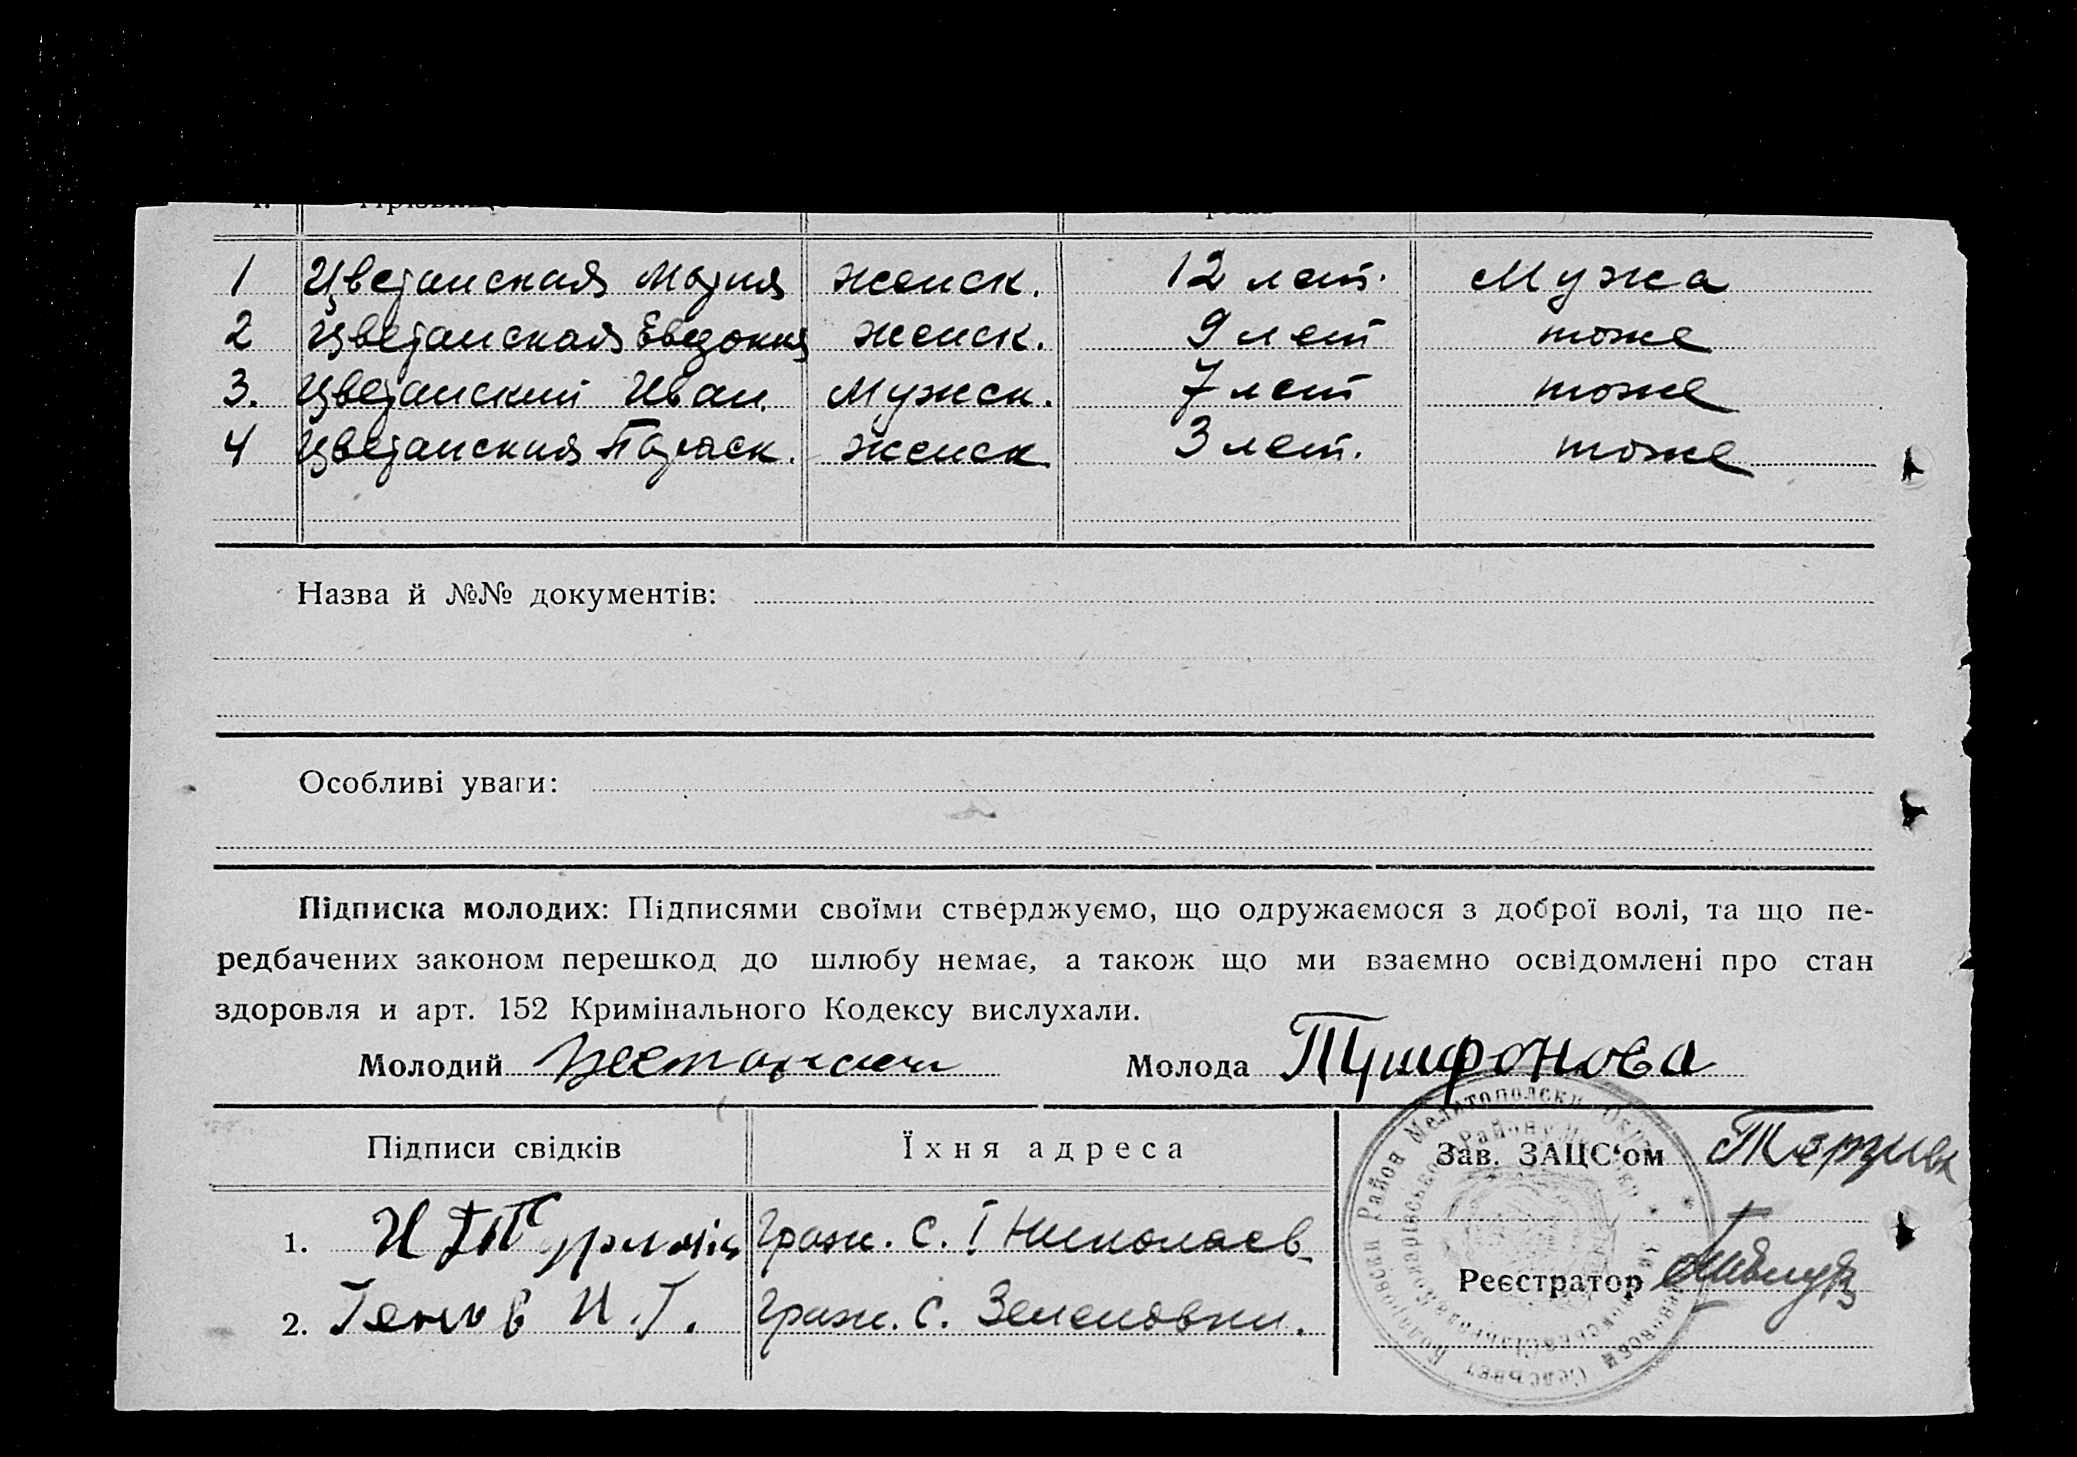 1 Цветанская Мария женск. 12 лет. Мужа
2 Цветанская Евдокия женск. 9 лет тоже
3. Цветанский Иван мужск. 7 лет тоже
4 Цветанская Параск. женск 3 лет. тоже
Назва й №№ документів:
Особливі уваги:
Підписка молодих: Підписями своїми стверджуємо, що одружаємося з доброї волі, та що пе-
редбачених законом перешкод до шлюбу немає, а також що ми взаємно освідомлені про стан
здоровля и арт. 152 Кримінального Кодексу вислухали.
Молодий Молода
Підписи свідків Їхня адреса Зав. ЗАЦС‘ом
1. граж. с. І Николаев
Реєстратор
2. Генов И. Г. граж. с. Зеленовки.